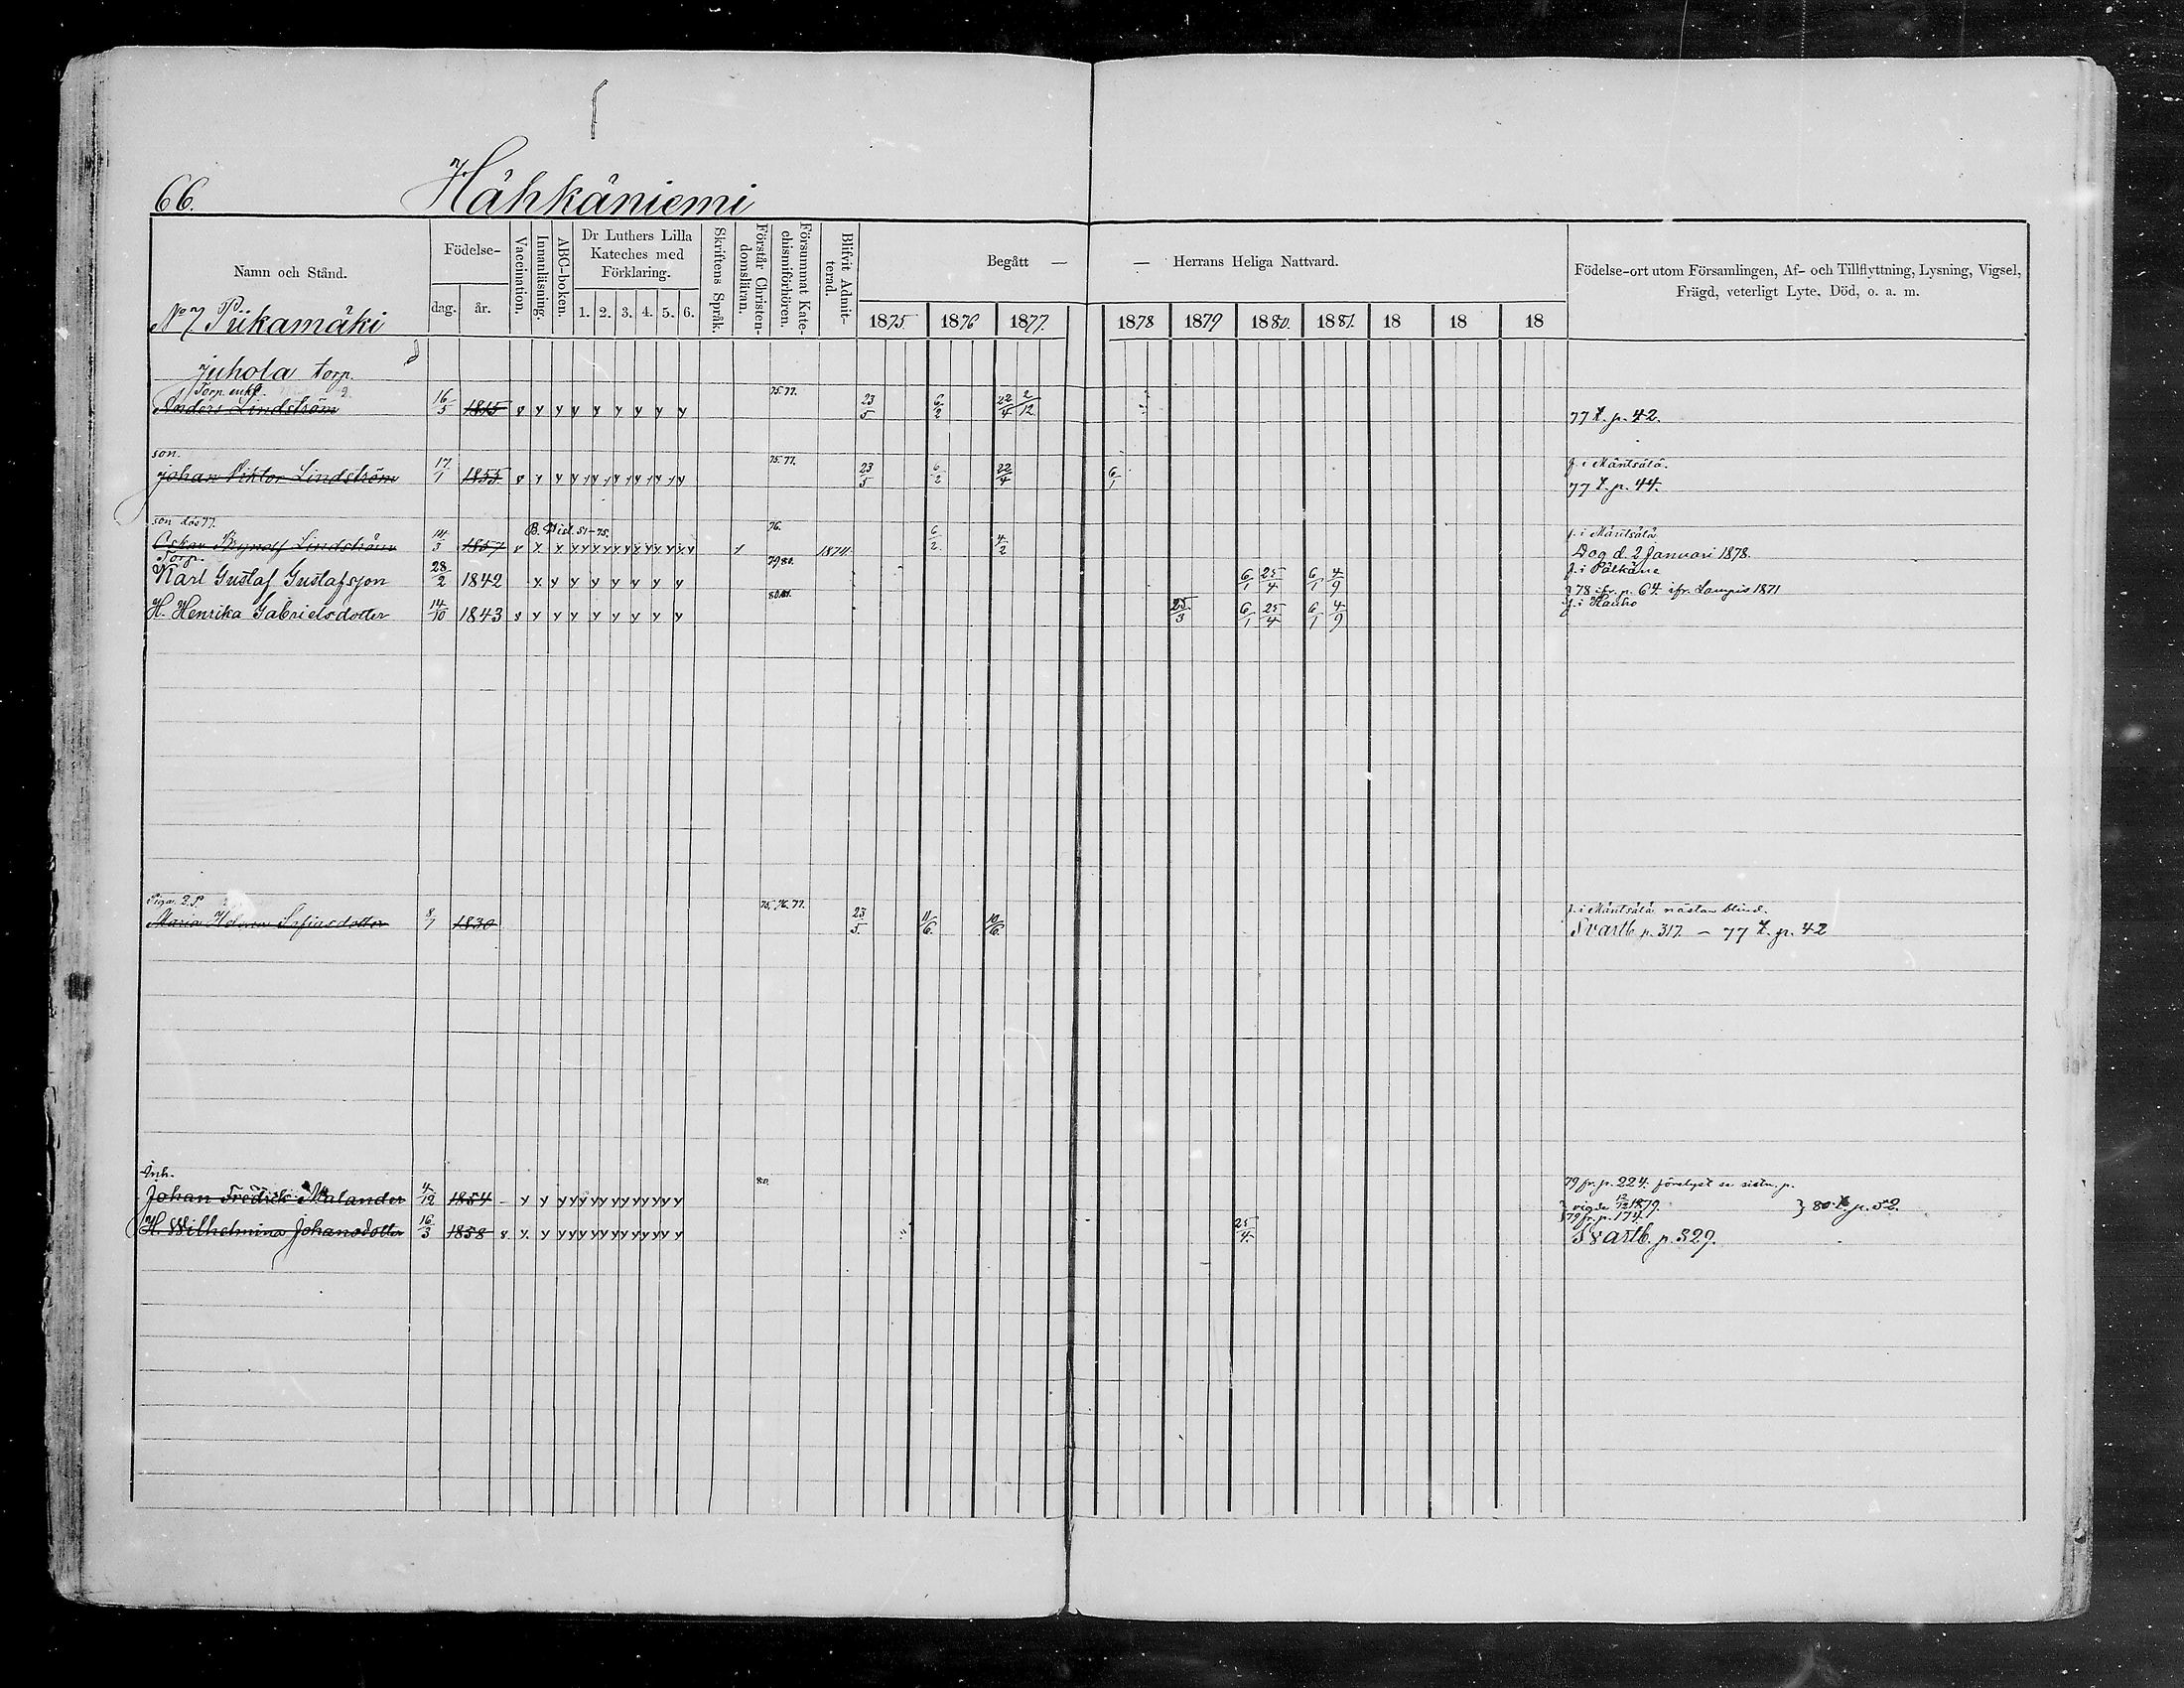 66. Hähkäniemi
Namn och Stånd.
Födelse-
dag. år.
Vaccination.
Innanläsning.
ABC-boken.
Dr Luthers Lilla
Kateches med
Förklaring.
1. 2. 3. 4. 5. 6.
Skriftens Språk.
Förstår Christen-
domsläran.
Försummat Kate-
chismiförhören.
Blifvit Admit-
terad.
Begått — — Herrans Heliga Nattvard.
1875. 1876 1877. 1878 1879 1880. 1881. 18 18 18
Födelse-ort utom Församlingen, Af- och Tillflyttning, Lysning, Vigsel,
Frägd, veterligt Lyte, Död, o. a. m.
No 7 Piikamäki
Juhola torp.
Torp. enkl.
Anders Lindström 16/5 1815 v y y y y y y y y 75.77. 23/5 6/2 22/4 2/12 77 t. p. 42.
son.
Johan Viktor Lindström 17/1 1855 v y y y y y y y y 75.77. 23/5 6/2 22/4 6/1 f. i Mäntsälä.
77 t. p. 44.
son
Oskar Lindström 14/3 1857 v 76. 1874 6/2 4/2 f. i Mäntsälä
Dog d. 2 Januari 1878.
Torp.
Karl Gustaf Gustafsson 28/2 1842 y y y y y y y y 79.80. 6/1 25/4 6/1 4/9 f. i Pälkäne
78 ifr. p. 64. ifr. Lampis 1871
H. Henrika Gabrielsdotter 14/10 1843 v y y y y y y y y 80.81. 25/3 6/1 25/4 6/1 4/9 f. i Hauho
Maria Helena 8/7 1830 75. 76. 77. 23/5. 11/6. 10/6. f. i Mäntsälä nästan blind.
Svartb. p. 317. – 77 t. p. 42
Inh.
Johan Fredrik Malander 4/12 1854 – y y y y y y y y y y y y 80. 79 fr. p. 224.
vigde 1879. } 80 t. p. 52.
H. Wilhelmina Johansdotter 16/3 1858 v y y y y y y y y y y y y 25/4. 79 fr. p. 174.
Svartb. p. 329.